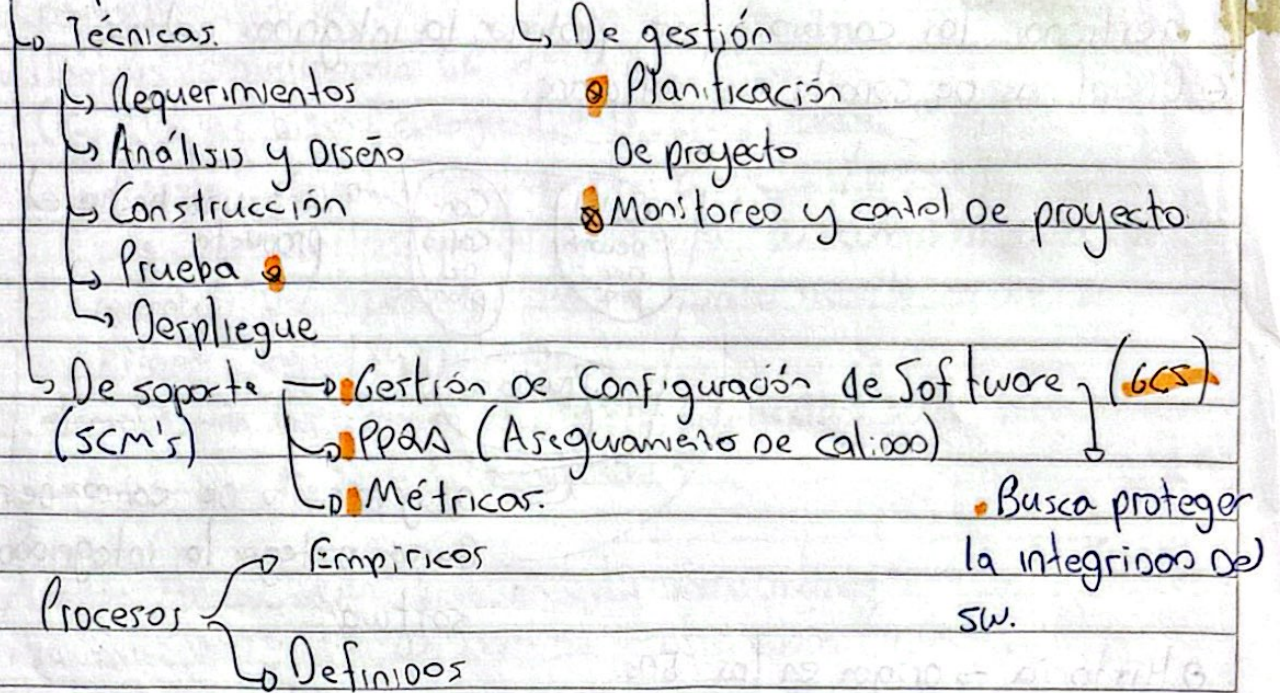 Técnicas.
Requerimientos
Análisis y Diseño
Construcción
Prueba
Despliegue
De gestión
Planificación
De proyecto
Monitoreo y control De proyecto.
De soporte
(SCM's)
Gestión De Configuración de Software (GCS)
PPQA (Aseguramiento De calidad)
Métricas.
Busca proteger
la integridad Del
sw.
Procesos
Empíricos
Definidos